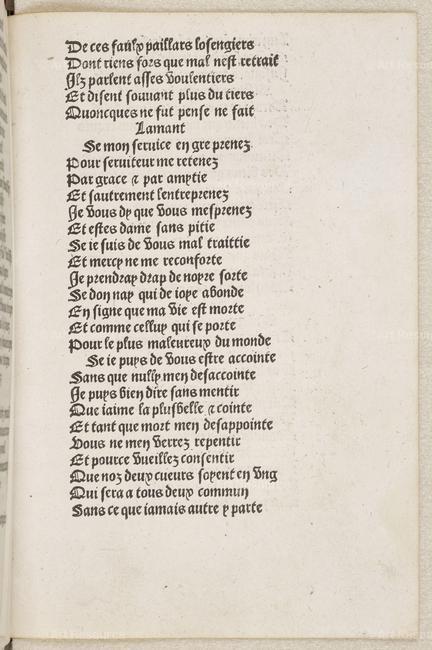 De ces faulx paillars losengiers
Dont riens fors que mal nest retrait
Ilz parlent asses voulentiers
Et disent souuant plus du tiers
Quoncques ne fut pense ne fait
Lamant
Se mon seruice en gre prenez
Pour seruiteur me retenez
Par grace ⁊ par amytie
Et sautrement lentreprenez
Je vous dy que vous mesprenez
Et estes dame sans pitie
Se ie suis de vous mal traittie
Et mercy ne me reconforte
Je prendray drap de noyre sorte
Se don nay qui de ioye abonde
En signe que ma vie est morte
Et comme celluy qui se porte
Pour le plus maleureux du monde
Se ie puys de vous estre accointe
Sans que nully men desaccointe
Je puys bien dire sans mentir
Que iaime la plusbelle ⁊ cointe
Et tant que mort men desappointe
Vous ne men verrez repentir
Et pource vueillez consentir
Que noz deux cueurs soyent en vng
Qui sera a tous deux commun
Sans ce que iamais autre y parte